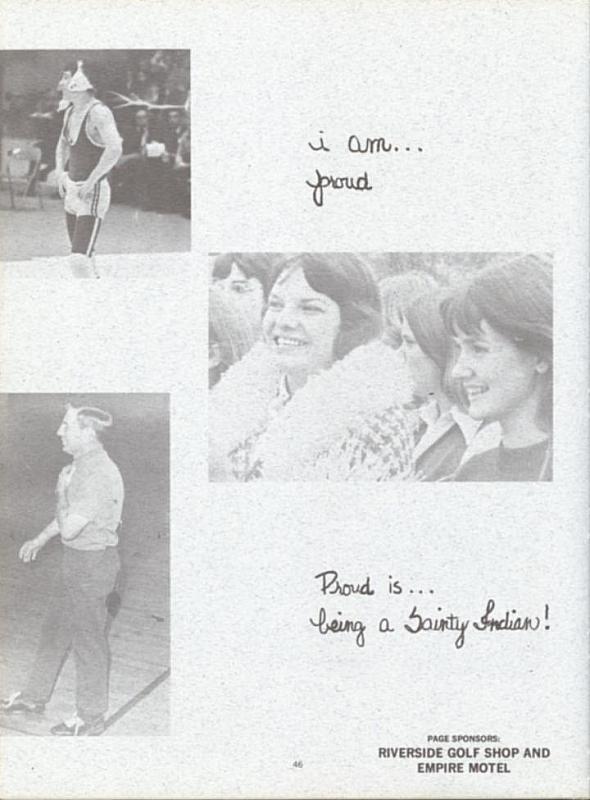 i am...
proud
Proud is...
being a Sainty Indian!
PAGE SPONSORS:
RIVERSIDE GOLF SHOP AND
EMPIRE MOTEL
46